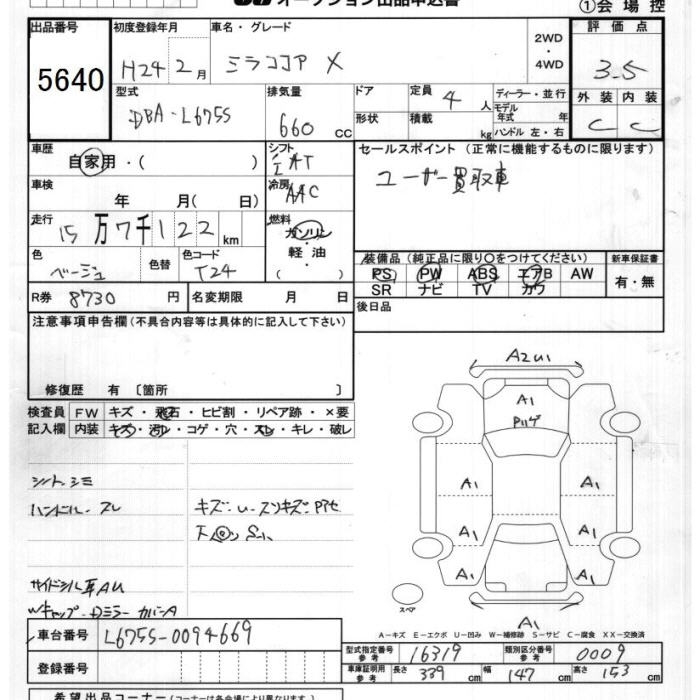 オークション出品申込書
①会場控
出品番号 5640
初度登録年月 H24 2月
車名・グレード ミラココア X
2WD・4WD
評価点 3.5
型式 DBA-L675S
排気量 660 cc
ドア 形状
定員 4人
積載 kg
ディーラー・並行
モデル年式 年
ハンドル 左・右
外装 内装
C C
車歴 自家用・( )
シフト IAT
セールスポイント (正常に機能するものに限ります)
ユーザー買取車
車検 年 月( 日)
冷房 AAC
走行 15万7千122km
燃料 ガソリン・軽油・( )
色 ベージュ 色替 色コード T24
装備品(純正品に限り○をつけてください)
新車保証書
PS PW ABS エアB AW
SR ナビ TV カワ
有・無
R券 8730円 名変期限 月 日
後日品
注意事項申告欄(不具合内容等は具体的に記入して下さい)
修復歴 有〔箇所 〕
検査員記入欄
FW キズ・飛石・ヒビ割・リペア跡・×要
内装 キズ・汚レ・コゲ・穴・スレ・キレ・破レ
シート・シミ
ハンドル・スレ
キズ・U・スリキズ
サイドシル
A2U1
A1
A1 A1
A1 A1
A1 A1
A1
スペア
A-キズ E-エクボ U-凹み W-補修跡 S-サビ C-腐食 XX-交換済
車台番号 L675S-0094669
登録番号
型式指定番号 参考 16319
類別区分番号 参考 0009
車庫証明用 参考 長さ 339cm 幅 147cm 高さ 153cm
希望出品コーナー(コーナーは各会場により異なります)